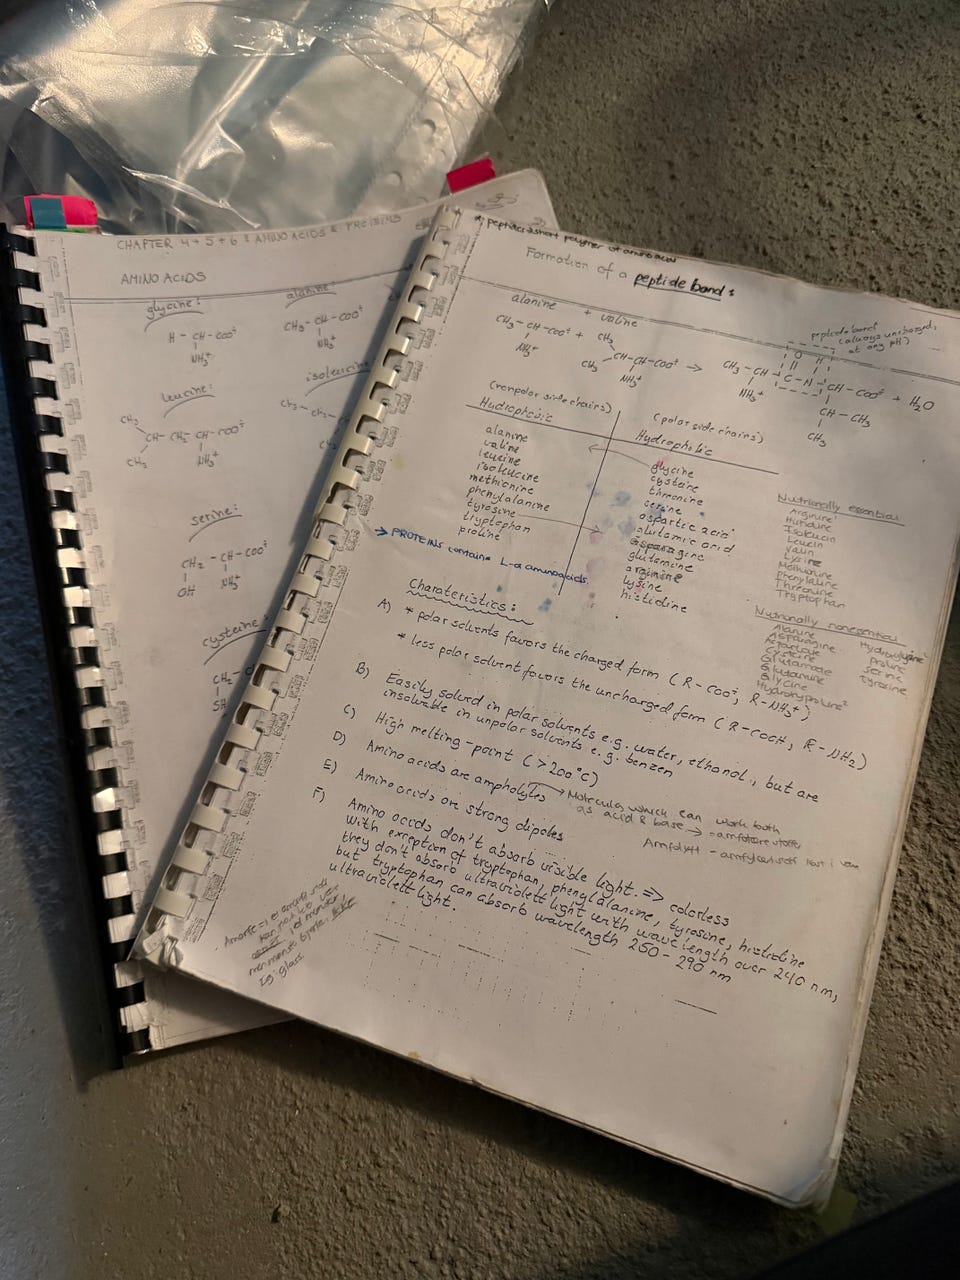 CHAPTER 4+5+6 : AMINO ACIDS & PROTEINS
AMINO ACIDS
glycine:
H - CH - COO⁻
NH₃⁺
alanine:
CH₃ - CH - COO⁻
NH₃⁺
leucine:
CH₃
CH - CH₂ - CH - COO⁻
CH₃
NH₃⁺
isoleucine
CH₃ - CH₂
serine:
CH₂ - CH - COO⁻
OH
NH₃⁺
cysteine:
CH₂ -
SH
short polymer of aminoacid
Formation of a peptide bond:
alanine + valine
CH₃ - CH - COO⁻ + CH₃
NH₃⁺
CH₃
CH - CH - COO⁻ →
NH₃⁺
CH₃ - CH
NH₃⁺
O H
C - N
CH - COO⁻ + H₂O
CH - CH₃
CH₃
peptide bond
(always uncharged,
at any pH)
(nonpolar side chains)
Hydrophobic
alanine
valine
leucine
isoleucine
methionine
phenylalanine
tyrosine
tryptophan
proline
(polar side chains)
Hydrophilic
glycine
cysteine
threonine
serine
aspartic acid
glutamic acid
asparagine
glutamine
arginine
lysine
histidine
Nutritionally essential
Arginine
Histidine
Isoleucin
Leucin
Valin
Lysine
Methionine
Phenylaline
Threonine
Tryptophan
Nutritionally nonessential
Alanine
Asparagine
Cysteine
Glutamate
Glutamine
Glycine
Hydroxyproline²
Hydroxylysine²
Proline
Serine
Tyrosine
→ PROTEINS contains L-α aminoacids.
Charateristics:
A) * polar solvents favors the charged form (R-COO⁻, R-NH₃⁺)
* less polar solvent favors the uncharged form (R-COOH, R-NH₂)
B) Easily solved in polar solvents e.g. water, ethanol, but are
insoluble in unpolar solvents e.g. benzen
C) High melting-point (>200°C)
D) Amino acids are ampholytes → Molecules which can work both
as acid & base →
E) Amino acids are strong dipoles
F) Amino acids don't absorb visible light. => colorless
With exception of tryptophan, phenylalanine, tyrosine, histidine
they don't absorb ultraviolett light with wavelength over 240 nm,
but tryptophan can absorb wavelength 250 - 290 nm
ultraviolett light.
glass.